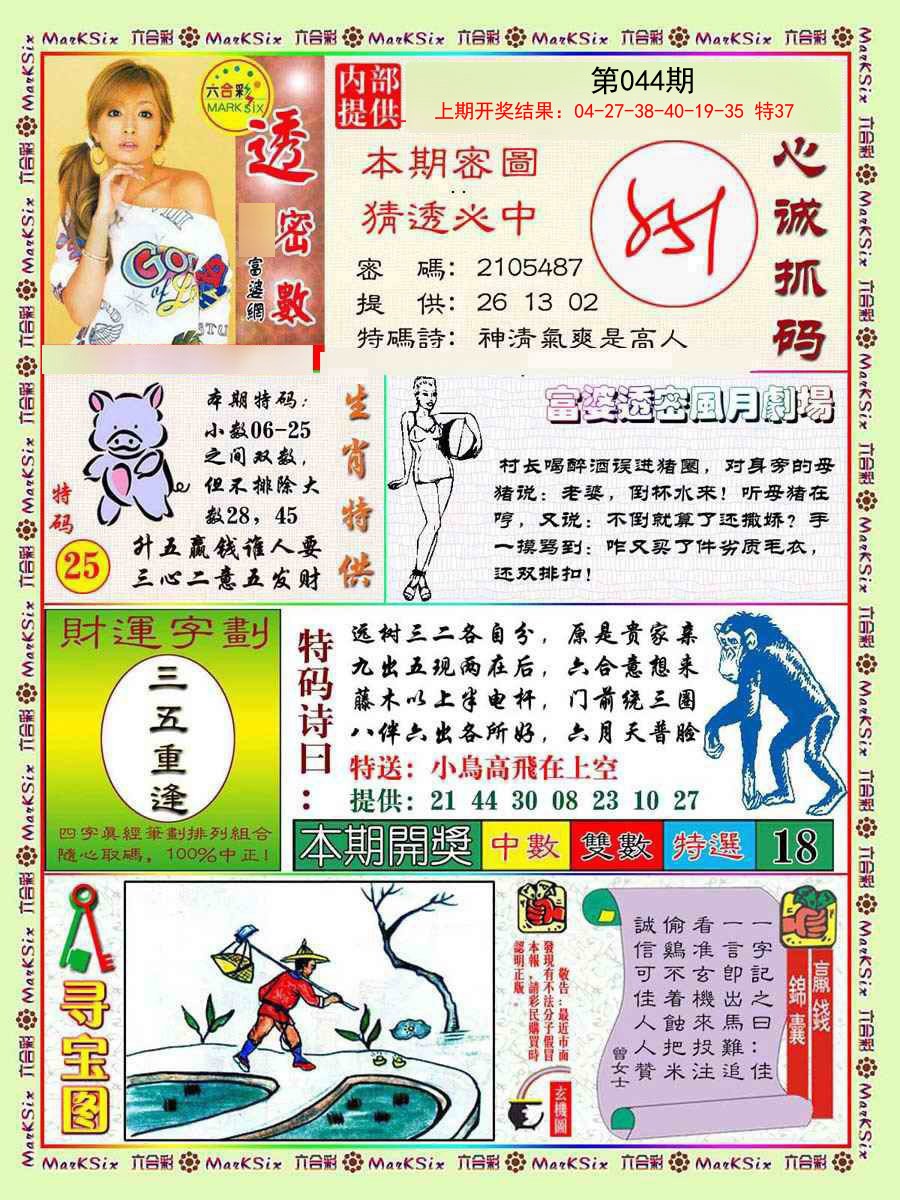 MarKSix 六合彩 MarKSix 六合彩 MarKSix 六合彩 MarKSix 六合彩 MarKSix 六合彩
六合彩
MARK SIX
透密數
富婆網
内部
提供
第044期
上期开奖结果：04-27-38-40-19-35 特37
本期密圖
猜透必中
密 碼：2105487
提 供：26 13 02
特碼詩：神清氣爽是高人
心诚抓码
本期特码：
小数06-25
之间双数，
但不排除大
数28，45
特码
25
升五赢钱谁人要
三心二意五发财
生肖特供
富婆透密風月劇場
村长喝醉酒误进猪圈，对身旁的母
猪说：老婆，倒杯水来！听母猪在
哼，又说：不倒就算了还撒娇？手
一摸骂到：咋又买了件劣质毛衣，
还双排扣！
財運字劃
三五重逢
四字眞經筆劃排列組合
隨心取碼，100%中正！
特码诗曰：
远树三二各自分，原是贵家亲
九出五现两在后，六合意想来
藤木以上半电杆，门前统三圈
八伴六出各所好，六月天普脸
特送：小鳥高飛在上空
提供：21 44 30 08 23 10 27
本期開獎 中數 雙數 特選 18
寻宝图
敬告：最近市面
發現有不法分子假冒
本報，請彩民購買時
認明正版。
玄機圖
一字記之曰：佳
一言卽出馬難追
看准玄機來投注
偷鷄不着蝕把米
誠信可佳人人贊
曾女士
贏錢
錦囊
MarKSix 六合彩 MarKSix 六合彩 MarKSix 六合彩 MarKSix 六合彩 MarKSix 六合彩